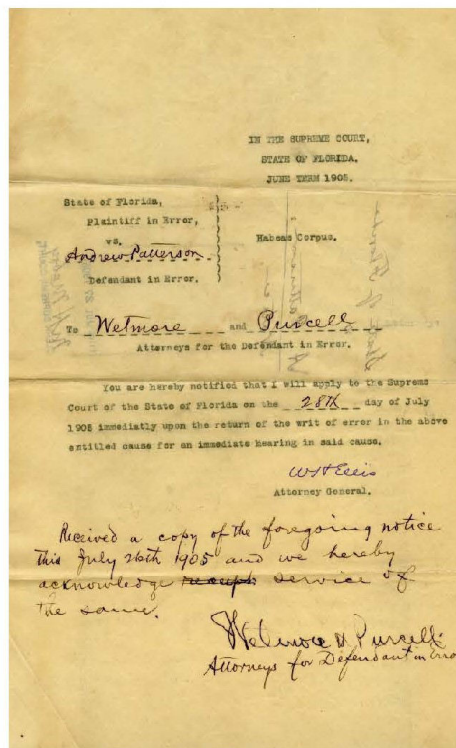 IN THE SUPREME COURT,
STATE OF FLORIDA,
JUNE TERM 1905.
State of Florida,
Plaintiff in Error,
vs.
Habeas Corpus.
Andrew Patterson
Defendant in Error.
To Wetmore and Purcell
Attorneys for the Defendant in Error.
You are hereby notified that I will apply to the Supreme
Court of the State of Florida on the 28th day of July
1905 immediatly upon the return of the writ of error in the above
entitled cause for an immediate hearing in said cause.
WH Ellis
Attorney General.
Received a copy of the foregoing notice
this July 26th 1905 and we hereby
acknowledge service of
the same.
Wetmore & Purcell
Attorneys for Defendant in Erro